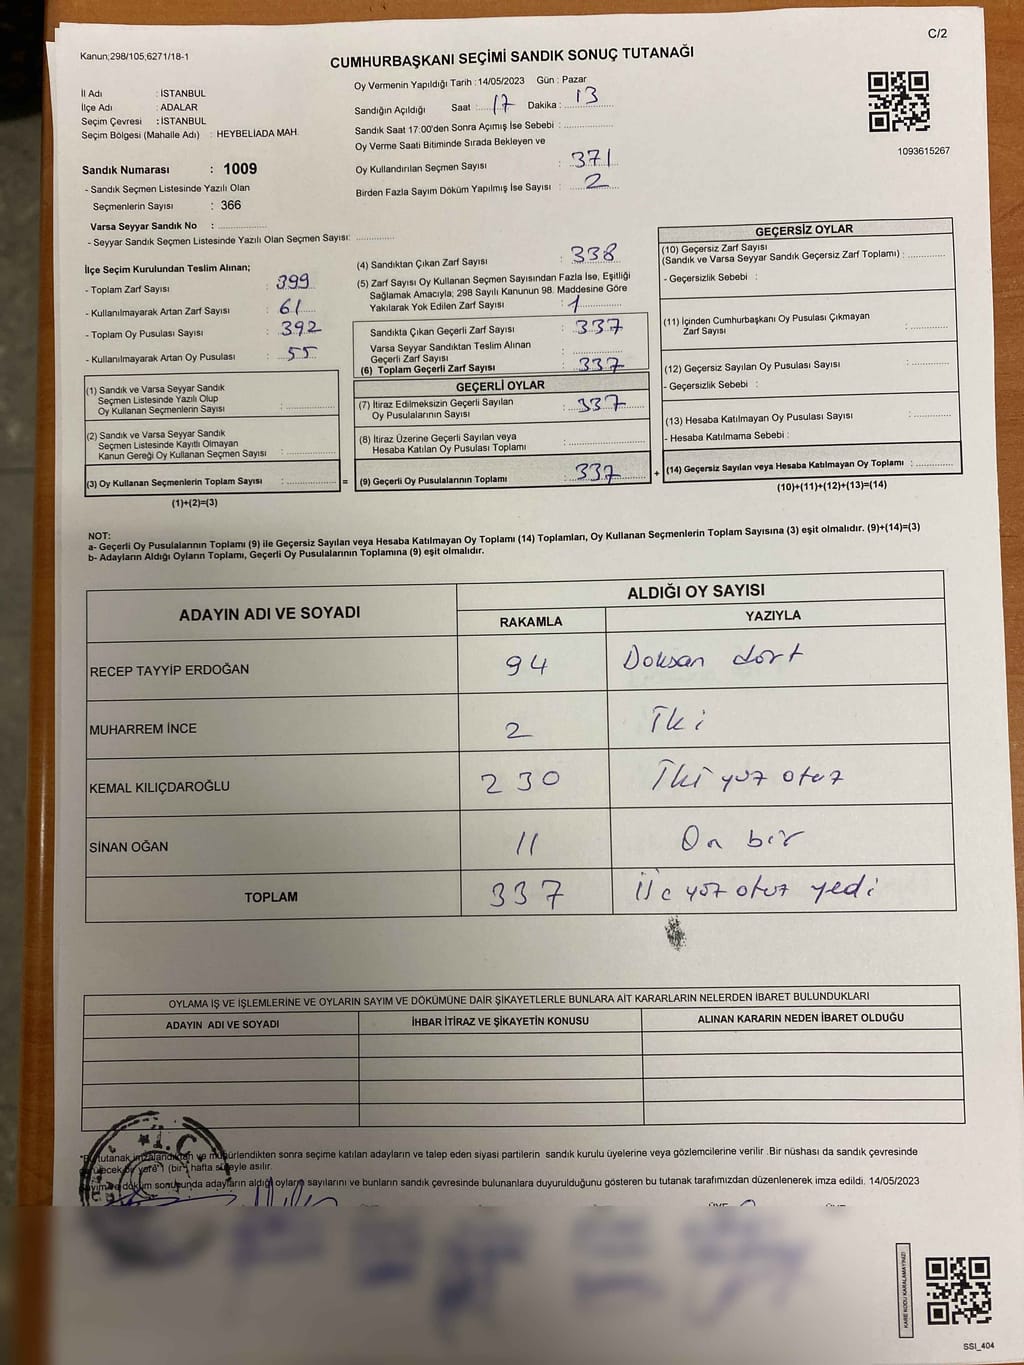 C/2
Kanun;298/105,6271/18-1
CUMHURBAŞKANI SEÇİMİ SANDIK SONUÇ TUTANAĞI
İl Adı : İSTANBUL
İlçe Adı : ADALAR
Seçim Çevresi : İSTANBUL
Seçim Bölgesi (Mahalle Adı) : HEYBELİADA MAH.
Oy Vermenin Yapıldığı Tarih : 14/05/2023 Gün : Pazar
Sandığın Açıldığı Saat : 17 Dakika : 13
Sandık Saat 17:00'den Sonra Açımış İse Sebebi :
Oy Verme Saati Bitiminde Sırada Bekleyen ve
Oy Kullandırılan Seçmen Sayısı : 371
Birden Fazla Sayım Döküm Yapılmış İse Sayısı : 2
1093615267
Sandık Numarası : 1009
- Sandık Seçmen Listesinde Yazılı Olan
Seçmenlerin Sayısı : 366
Varsa Seyyar Sandık No :
- Seyyar Sandık Seçmen Listesinde Yazılı Olan Seçmen Sayısı:
İlçe Seçim Kurulundan Teslim Alınan;
- Toplam Zarf Sayısı : 399
- Kullanılmayarak Artan Zarf Sayısı : 61
- Toplam Oy Pusulası Sayısı : 392
- Kullanılmayarak Artan Oy Pusulası : 55
(1) Sandık ve Varsa Seyyar Sandık
Seçmen Listesinde Yazılı Olup
Oy Kullanan Seçmenlerin Sayısı :
(2) Sandık ve Varsa Seyyar Sandık
Seçmen Listesinde Kayıtlı Olmayan
Kanun Gereği Oy Kullanan Seçmen Sayısı :
(3) Oy Kullanan Seçmenlerin Toplam Sayısı : =
(1)+(2)=(3)
(4) Sandıktan Çıkan Zarf Sayısı : 338
(5) Zarf Sayısı Oy Kullanan Seçmen Sayısından Fazla İse, Eşitliği
Sağlamak Amacıyla; 298 Sayılı Kanunun 98. Maddesine Göre
Yakılarak Yok Edilen Zarf Sayısı : 1
Sandıkta Çıkan Geçerli Zarf Sayısı : 337
Varsa Seyyar Sandıktan Teslim Alınan
Geçerli Zarf Sayısı :
(6) Toplam Geçerli Zarf Sayısı : 337
GEÇERLİ OYLAR
(7) İtiraz Edilmeksizin Geçerli Sayılan
Oy Pusulalarının Sayısı : 337
(8) İtiraz Üzerine Geçerli Sayılan veya
Hesaba Katılan Oy Pusulası Toplamı :
(9) Geçerli Oy Pusulalarının Toplamı : 337 +
GEÇERSİZ OYLAR
(10) Geçersiz Zarf Sayısı
(Sandık ve Varsa Seyyar Sandık Geçersiz Zarf Toplamı) :
- Geçersizlik Sebebi :
(11) İçinden Cumhurbaşkanı Oy Pusulası Çıkmayan
Zarf Sayısı :
(12) Geçersiz Sayılan Oy Pusulası Sayısı :
- Geçersizlik Sebebi :
(13) Hesaba Katılmayan Oy Pusulası Sayısı :
- Hesaba Katılmama Sebebi :
(14) Geçersiz Sayılan veya Hesaba Katılmayan Oy Toplamı :
(10)+(11)+(12)+(13)=(14)
NOT:
a- Geçerli Oy Pusulalarının Toplamı (9) ile Geçersiz Sayılan veya Hesaba Katılmayan Oy Toplamı (14) Toplamları, Oy Kullanan Seçmenlerin Toplam Sayısına (3) eşit olmalıdır. (9)+(14)=(3)
b- Adayların Aldığı Oyların Toplamı, Geçerli Oy Pusulalarının Toplamına (9) eşit olmalıdır.
ADAYIN ADI VE SOYADI ALDIĞI OY SAYISI
RAKAMLA YAZIYLA
RECEP TAYYİP ERDOĞAN 94 Doksan dört
MUHARREM İNCE 2 İki
KEMAL KILIÇDAROĞLU 230 İki yüz otuz
SİNAN OĞAN 11 On bir
TOPLAM 337 Üç yüz otuz yedi
OYLAMA İŞ VE İŞLEMLERİNE VE OYLARIN SAYIM VE DÖKÜMÜNE DAİR ŞİKAYETLERLE BUNLARA AİT KARARLARIN NELERDEN İBARET BULUNDUKLARI
ADAYIN ADI VE SOYADI İHBAR İTİRAZ VE ŞİKAYETİN KONUSU ALINAN KARARIN NEDEN İBARET OLDUĞU
T.C.
tutanak imzalandıktan ve mühürlendikten sonra seçime katılan adayların ve talep eden siyasi partilerin sandık kurulu üyelerine veya gözlemcilerine verilir .Bir nüshası da sandık çevresinde
yere" (bir) hafta süreyle asılır.
döküm sonucunda adayların aldığı oyların sayılarını ve bunların sandık çevresinde bulunanlara duyurulduğunu gösteren bu tutanak tarafımızdan düzenlenerek imza edildi. 14/05/2023
KARE KODU KARALAMAYINIZ!
SSI_404